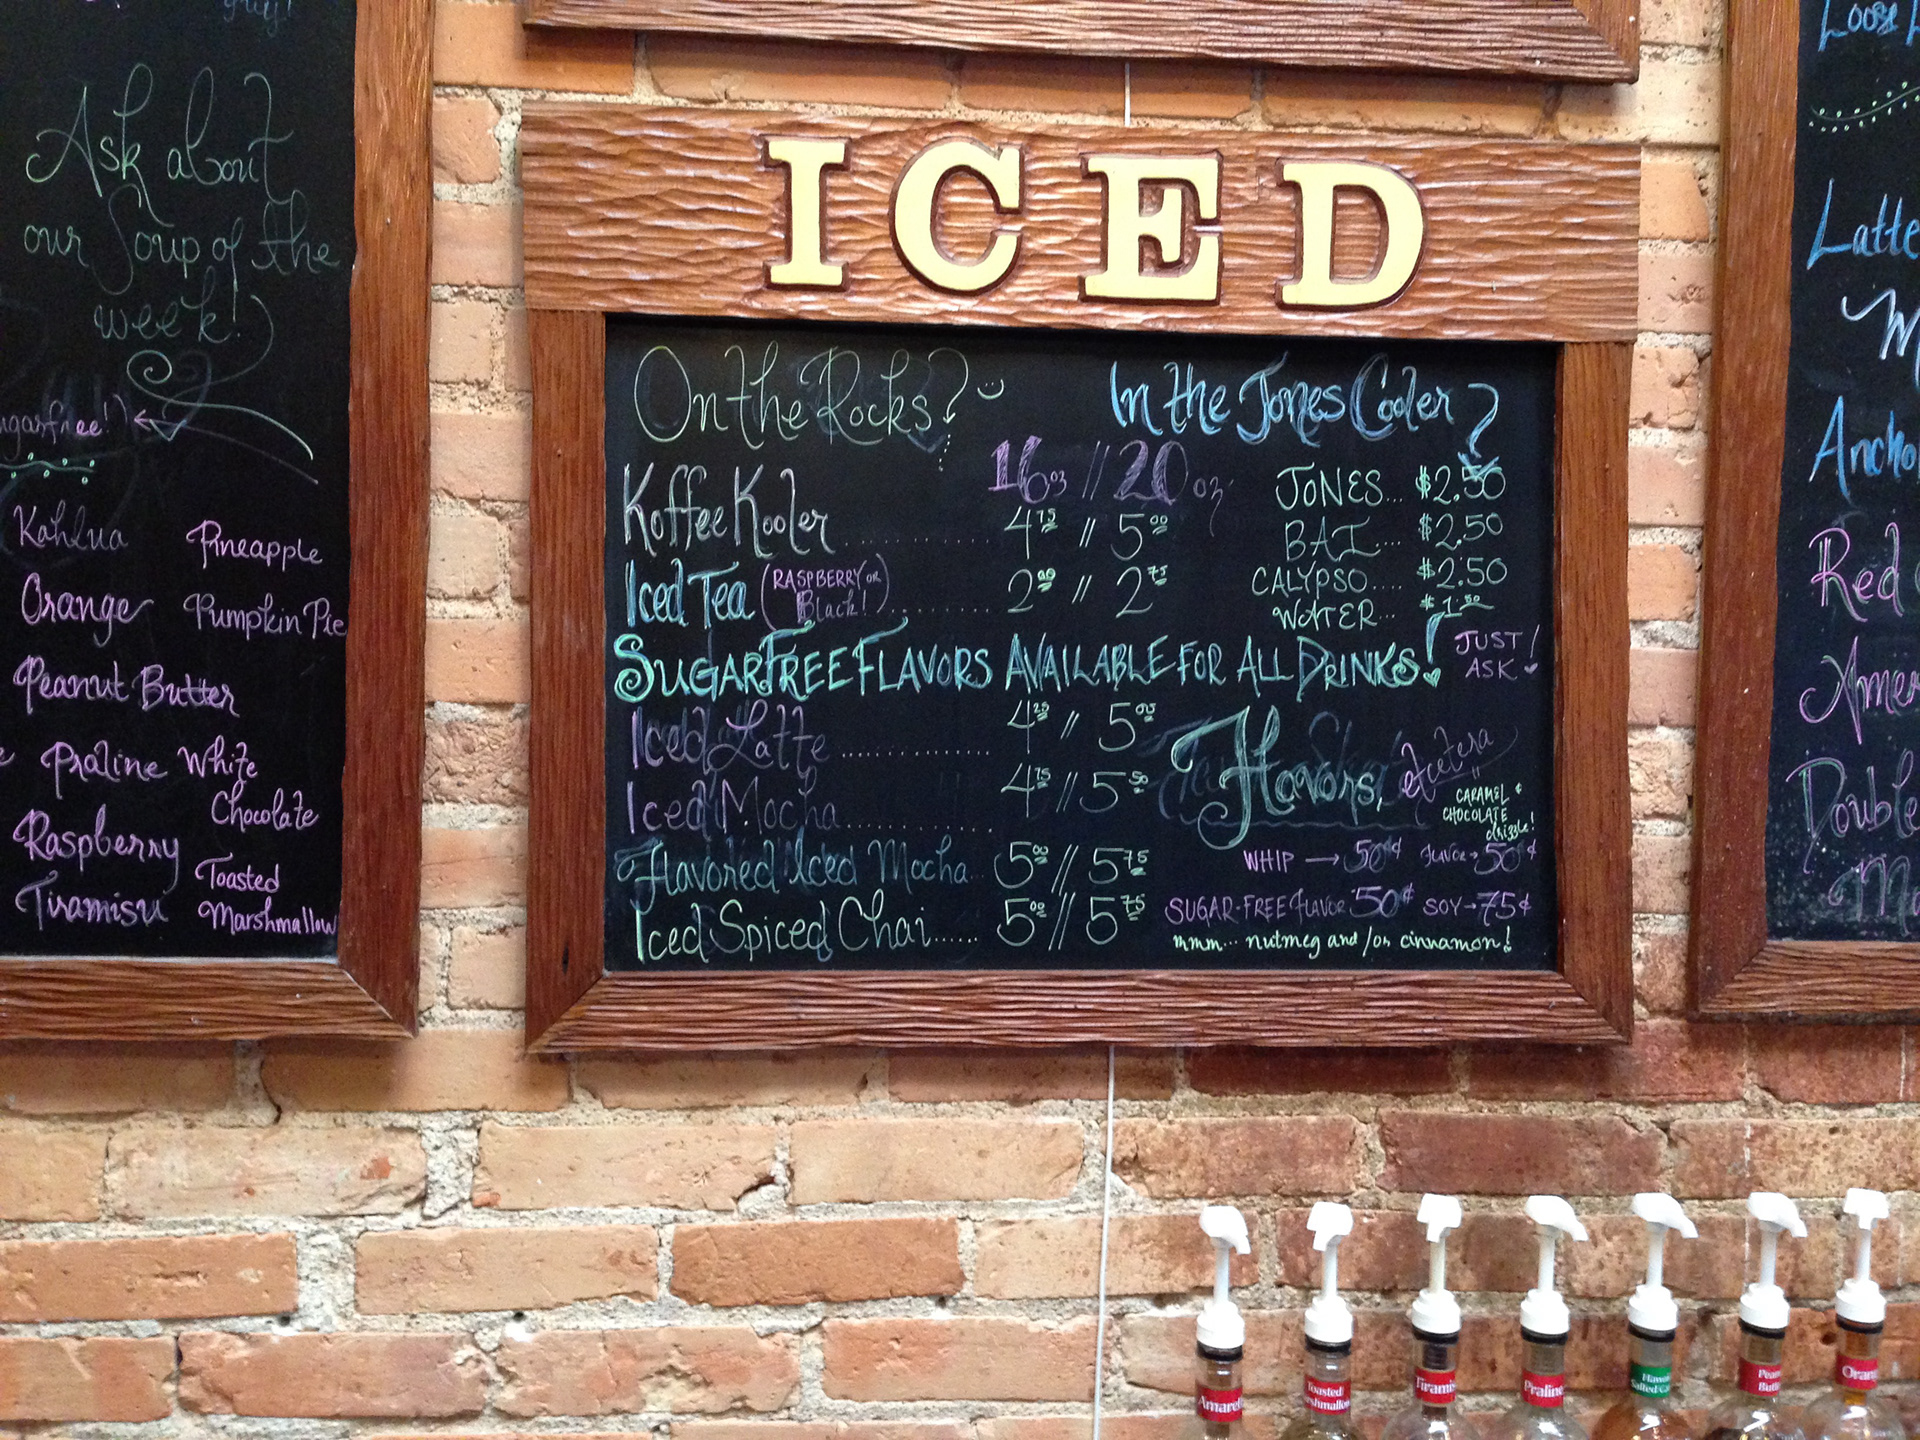 Ask about
our Soup of the
week!
ugarfree!)
Kahlua
Pineapple
Orange
Pumpkin Pie
Peanut Butter
Praline
White
Chocolate
Raspberry
Toasted
Marshmallow
Tiramisu
ICED
On the Rocks?
16oz // 20oz
Koffee Kooler ............ 4.75 // 5.00
Iced Tea (RASPBERRY OR Black!) ......... 2.00 // 2.75
In the Jones Cooler?
JONES... $2.50
BAI... $2.50
CALYPSO.... $2.50
WATER... $1.50
SUGARFREE FLAVORS AVAILABLE FOR ALL DRINKS!
JUST
ASK!
Iced Latte ............ 4.25 // 5.00
Iced Mocha ............ 4.75 // 5.50
Flavored Iced Mocha... 5.00 // 5.75
Iced Spiced Chai...... 5.00 // 5.75
Flavors, etcetera
CARAMEL &
CHOCOLATE
drizzle!
WHIP → 50¢ FLAVOR → 50¢
SUGAR-FREE FLAVOR 50¢ SOY → 75¢
mmm... nutmeg and/or cinnamon!
Loose
Latte
Ancho
Red
Amer
Double
Amaret
Toasted
Marshmallow
Tiramis
Praline
Salted Ca
Pean
Butt
Oran